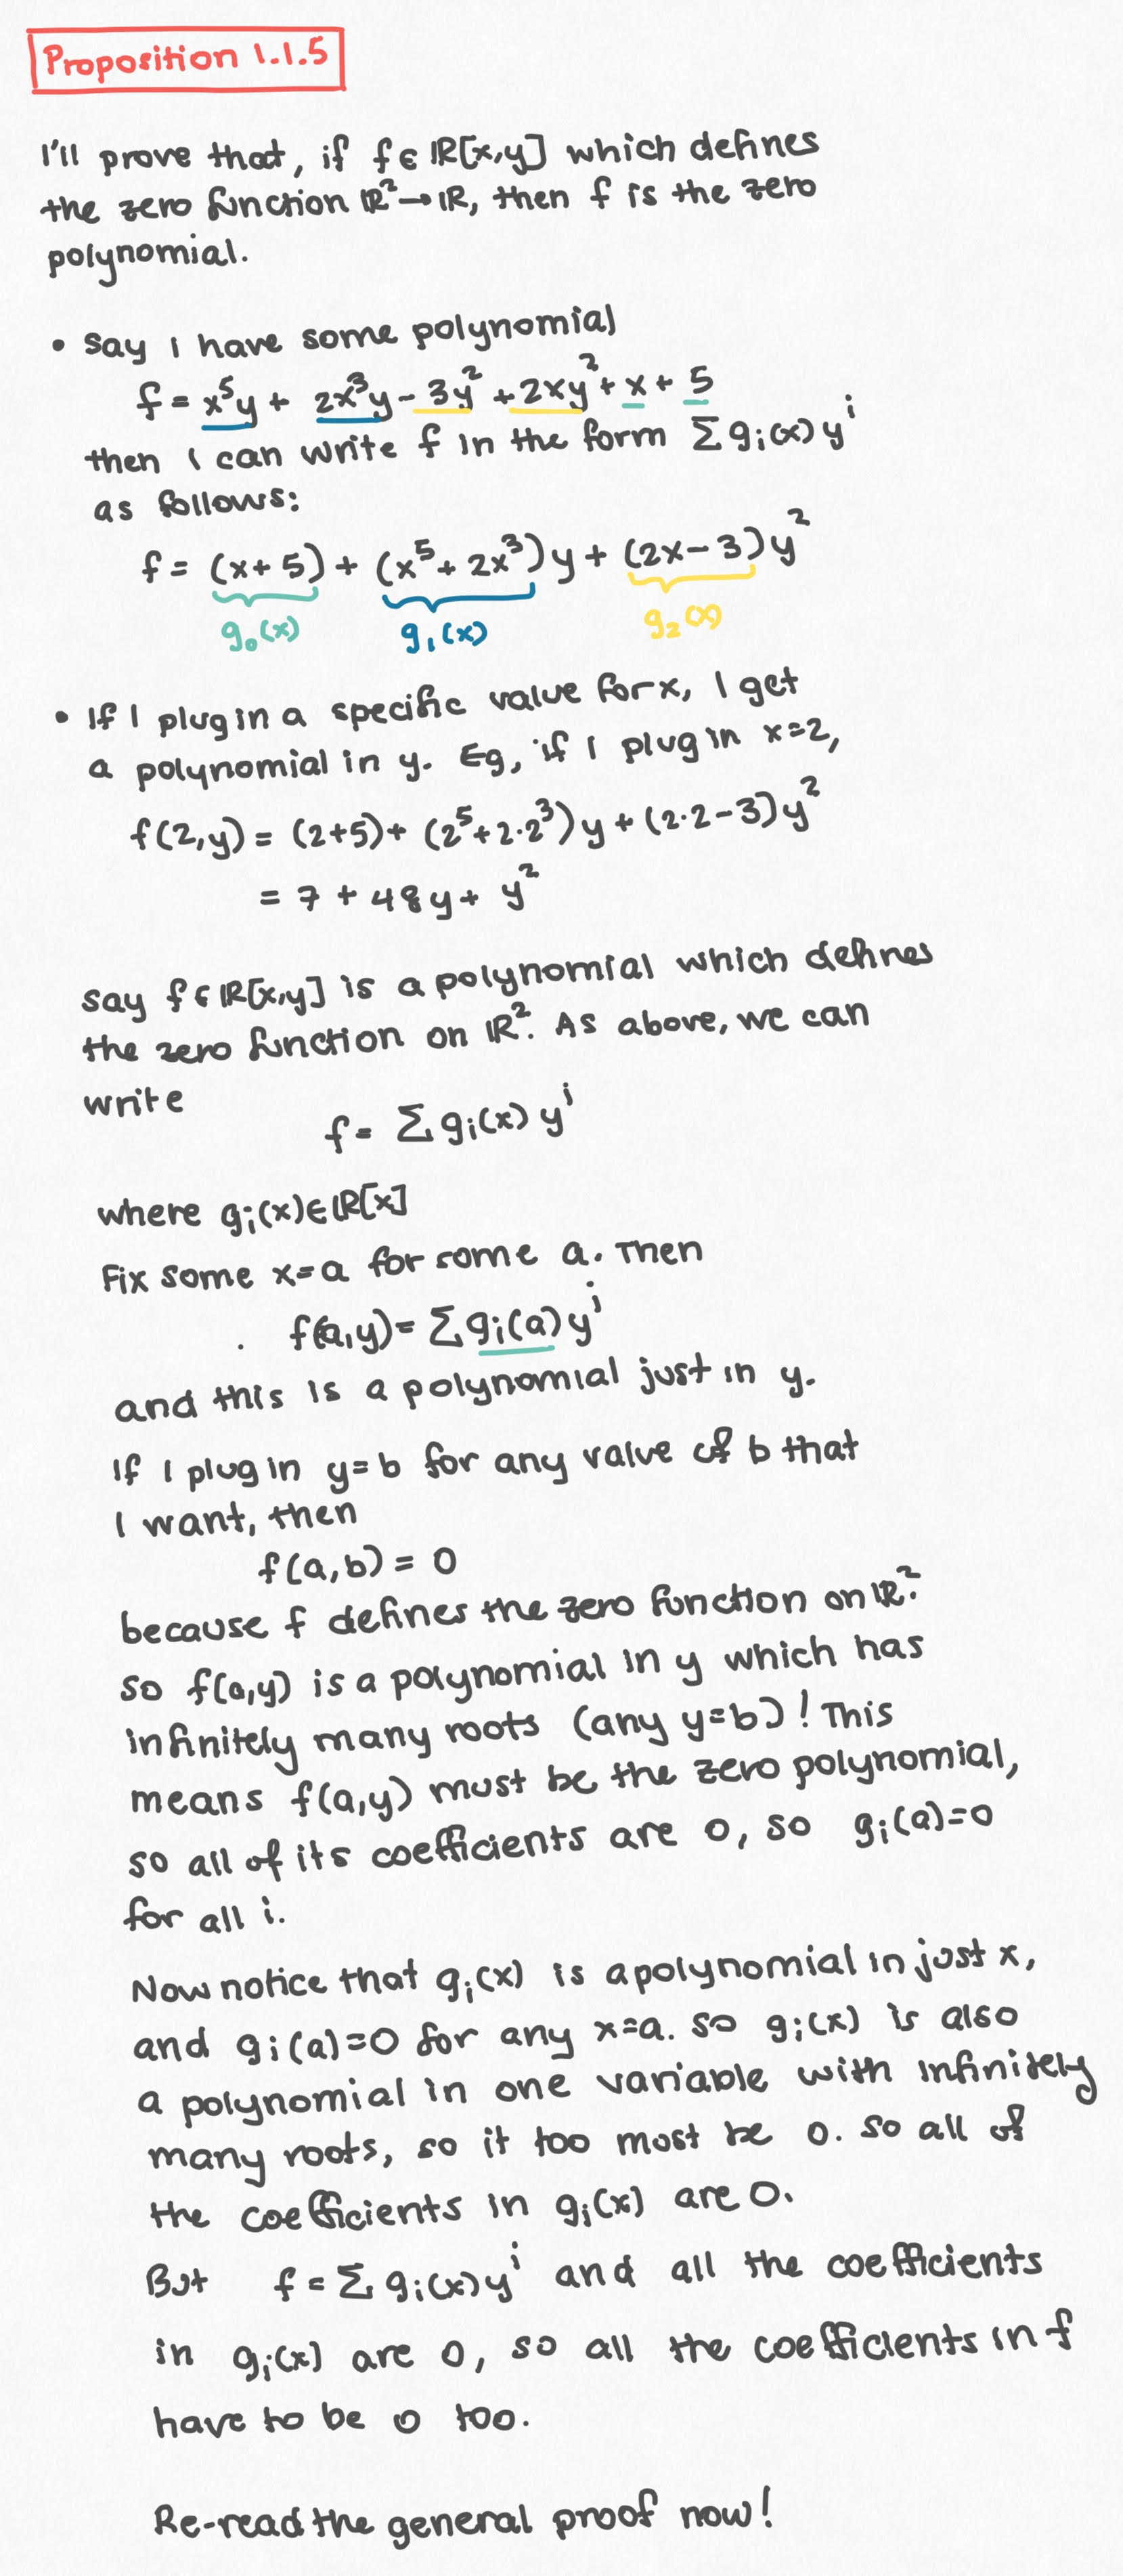 Proposition 1.1.5
I'll prove that, if f ∈ ℝ[x,y] which defines
the zero function ℝ² → ℝ, then f is the zero
polynomial.
• Say I have some polynomial
f = x⁵y + 2x³y - 3y² + 2xy² + x + 5
then I can write f in the form Σ gᵢ(x) yⁱ
as follows:
f = (x+5) + (x⁵ + 2x³)y + (2x-3)y²
g₀(x) g₁(x) g₂(x)
• If I plug in a specific value for x, I get
a polynomial in y. Eg, if I plug in x=2,
f(2,y) = (2+5) + (2⁵+2·2³)y + (2·2-3)y²
= 7 + 48y + y²
Say f ∈ ℝ[x,y] is a polynomial which defines
the zero function on ℝ². As above, we can
write
f = Σ gᵢ(x) yⁱ
where gᵢ(x) ∈ ℝ[x]
Fix some x=a for some a. Then
f(a,y) = Σ gᵢ(a) yⁱ
and this is a polynomial just in y.
If I plug in y=b for any value of b that
I want, then
f(a,b) = 0
because f defines the zero function on ℝ².
So f(a,y) is a polynomial in y which has
infinitely many roots (any y=b)! This
means f(a,y) must be the zero polynomial,
so all of its coefficients are 0, so gᵢ(a)=0
for all i.
Now notice that gᵢ(x) is a polynomial in just x,
and gᵢ(a)=0 for any x=a. So gᵢ(x) is also
a polynomial in one variable with infinitely
many roots, so it too must be 0. So all of
the coefficients in gᵢ(x) are 0.
But f = Σ gᵢ(x) yⁱ and all the coefficients
in gᵢ(x) are 0, so all the coefficients in f
have to be 0 too.
Re-read the general proof now!